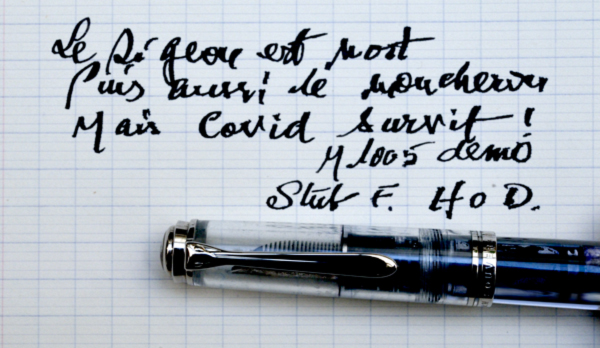 Le Pigeon est mort
Puis aussi le moucheron
Mais Covid survit !
M 1005 demo
Stub F. H o D.